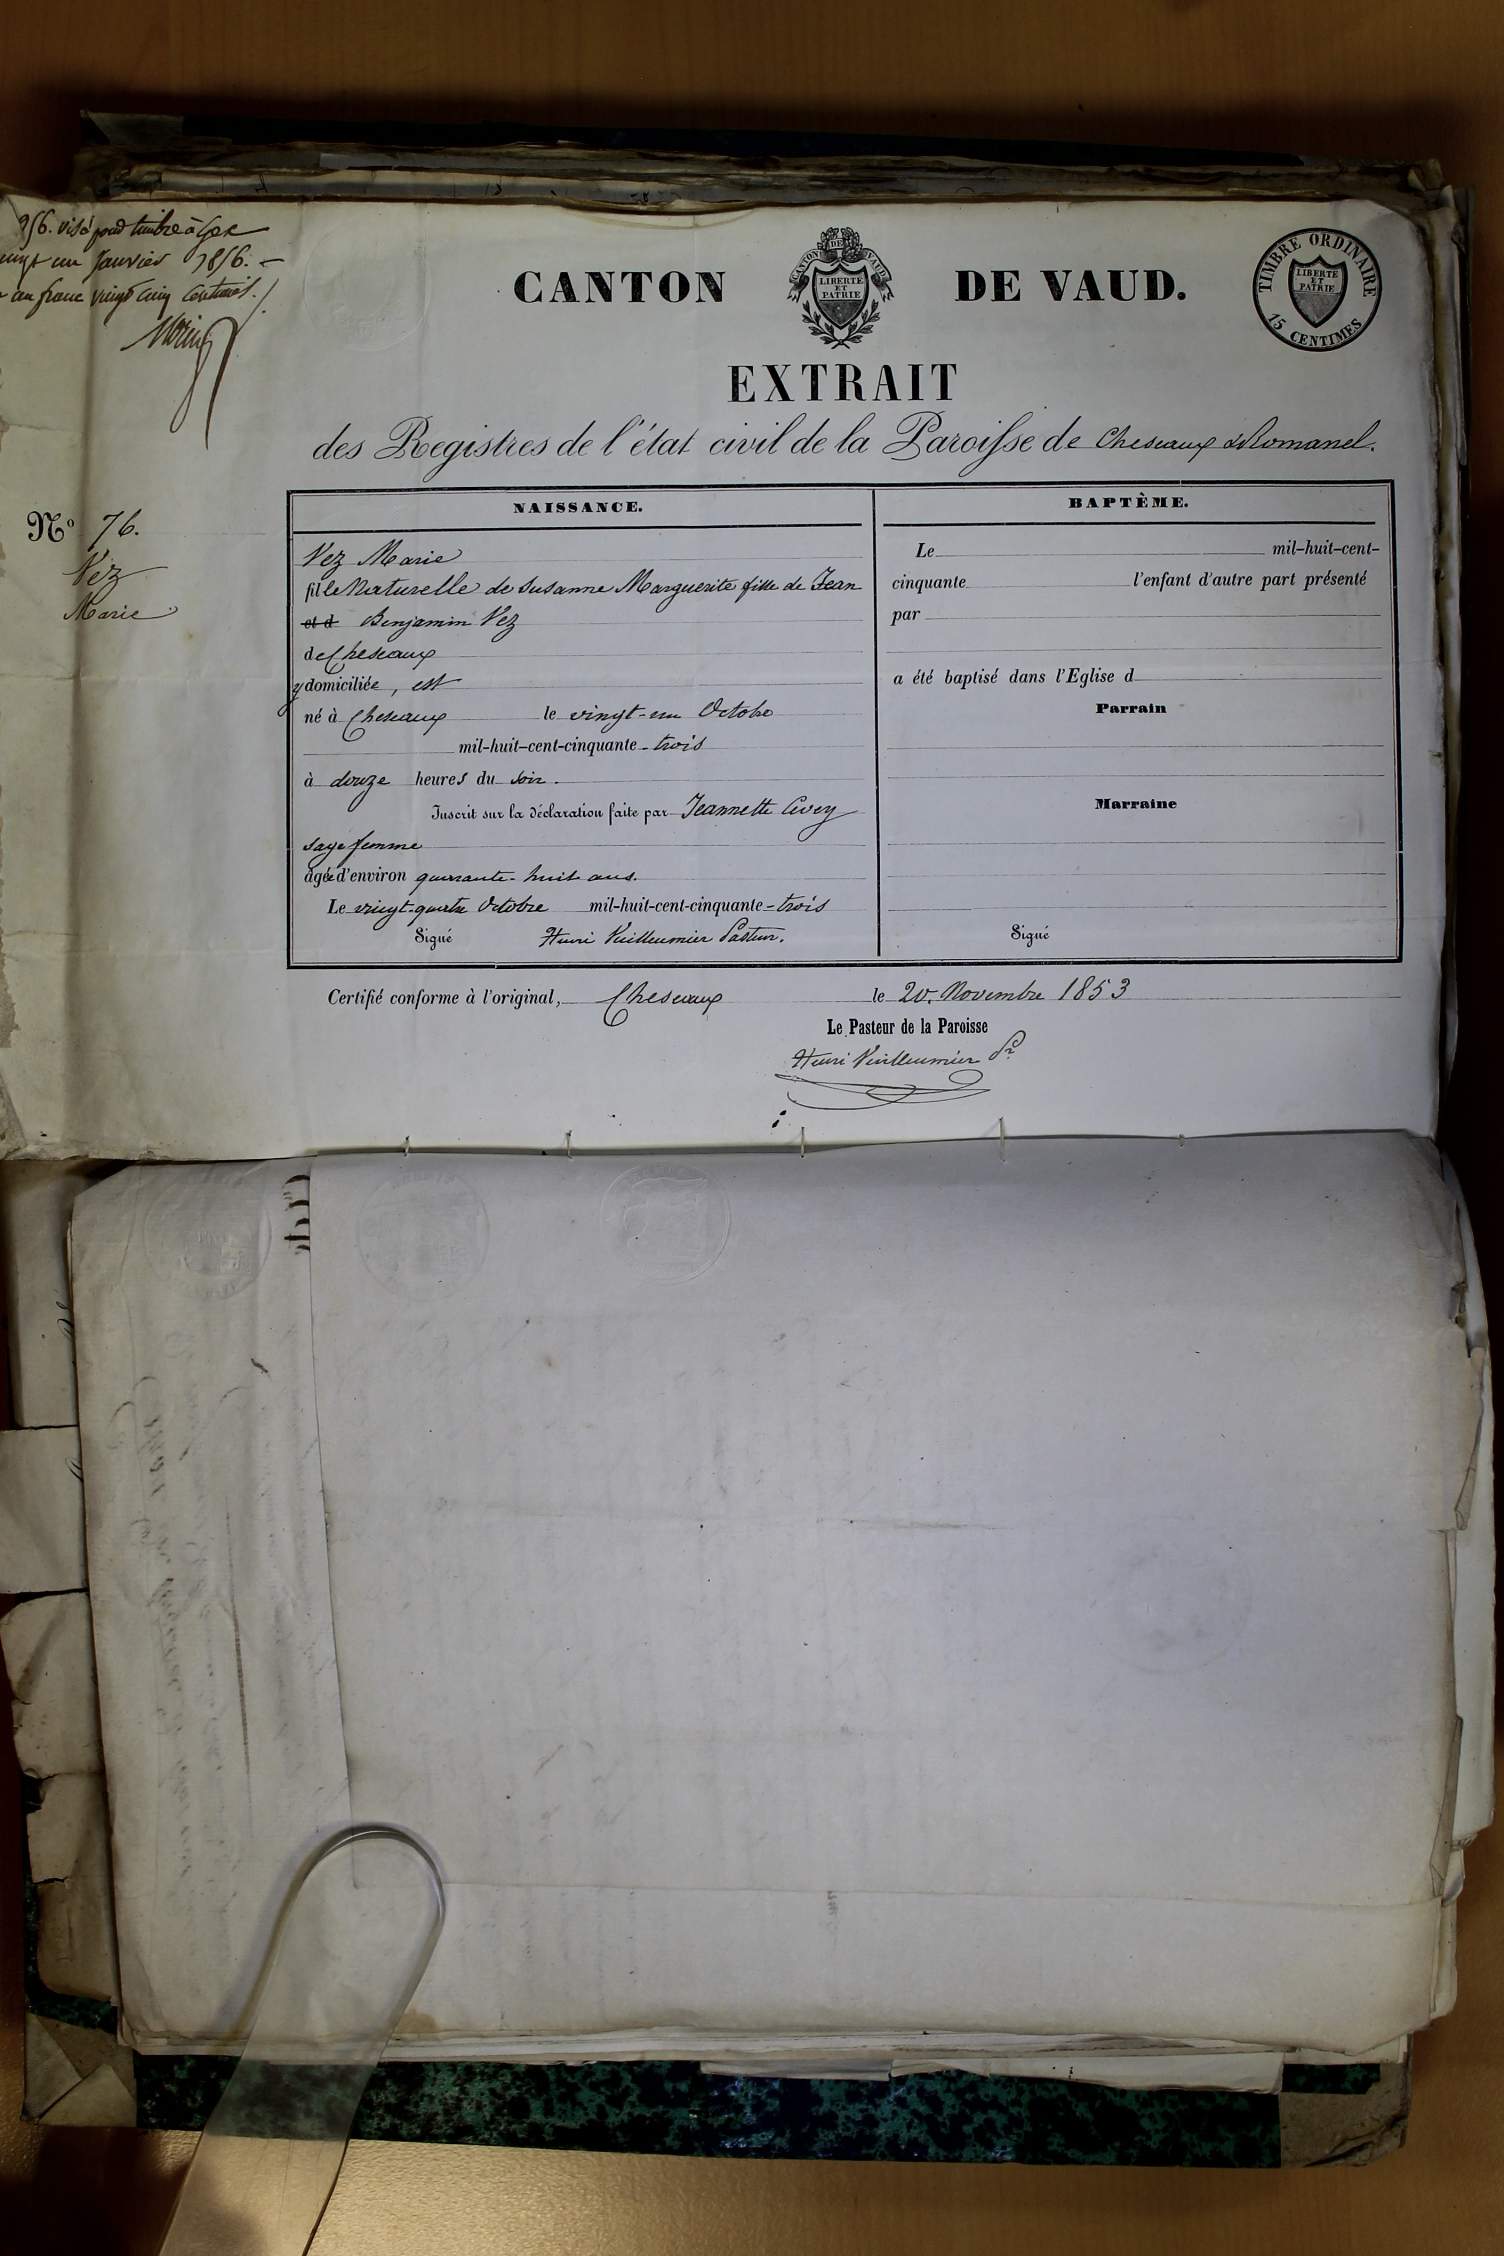 956. visé pour timbre à Gex
vingt un Janvier 1856. –
un franc vingt cinq centimes.
CANTON DE VAUD.
CANTON DE VAUD
LIBERTÉ
ET
PATRIE
TIMBRE ORDINAIRE
LIBERTÉ
ET
PATRIE
15 CENTIMES
EXTRAIT
des Registres de l'état civil de la Paroisse de Cheseaux & Romanel.
No 76.
Vez
Marie
NAISSANCE.
Vez Marie
fille Naturelle de Susanne Marguerite fille de Jean
et d Benjamin Vez
de Cheseaux
y domiciliée, est
né à Cheseaux le vingt-un Octobre
mil-huit-cent-cinquante-trois
à douze heures du soir.
Inscrit sur la déclaration faite par Jeannette
sage femme
âgée d'environ quarante-huit ans.
Le vingt-quatre Octobre mil-huit-cent-cinquante-trois
Signé Henri Vuilleumier Pasteur.
BAPTÊME.
Le mil-huit-cent-
cinquante l'enfant d'autre part présenté
par
a été baptisé dans l'Eglise d
Parrain
Marraine
Signé
Certifié conforme à l'original, Cheseaux le 20. Novembre 1853
Le Pasteur de la Paroisse
Henri Vuilleumier Pr